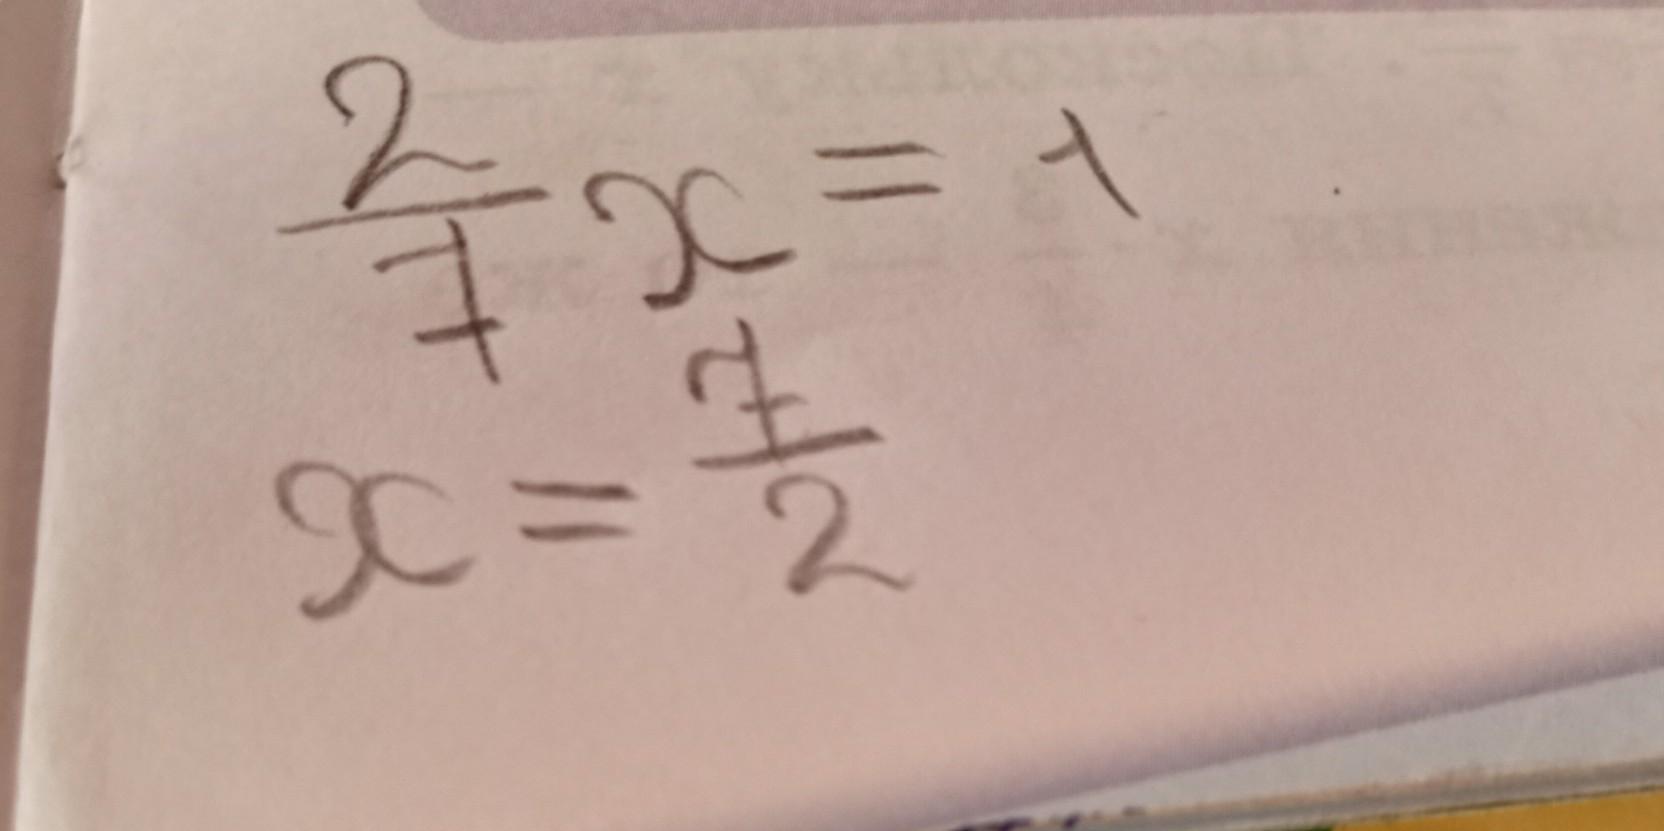 2/7 x = 1
x = 7/2